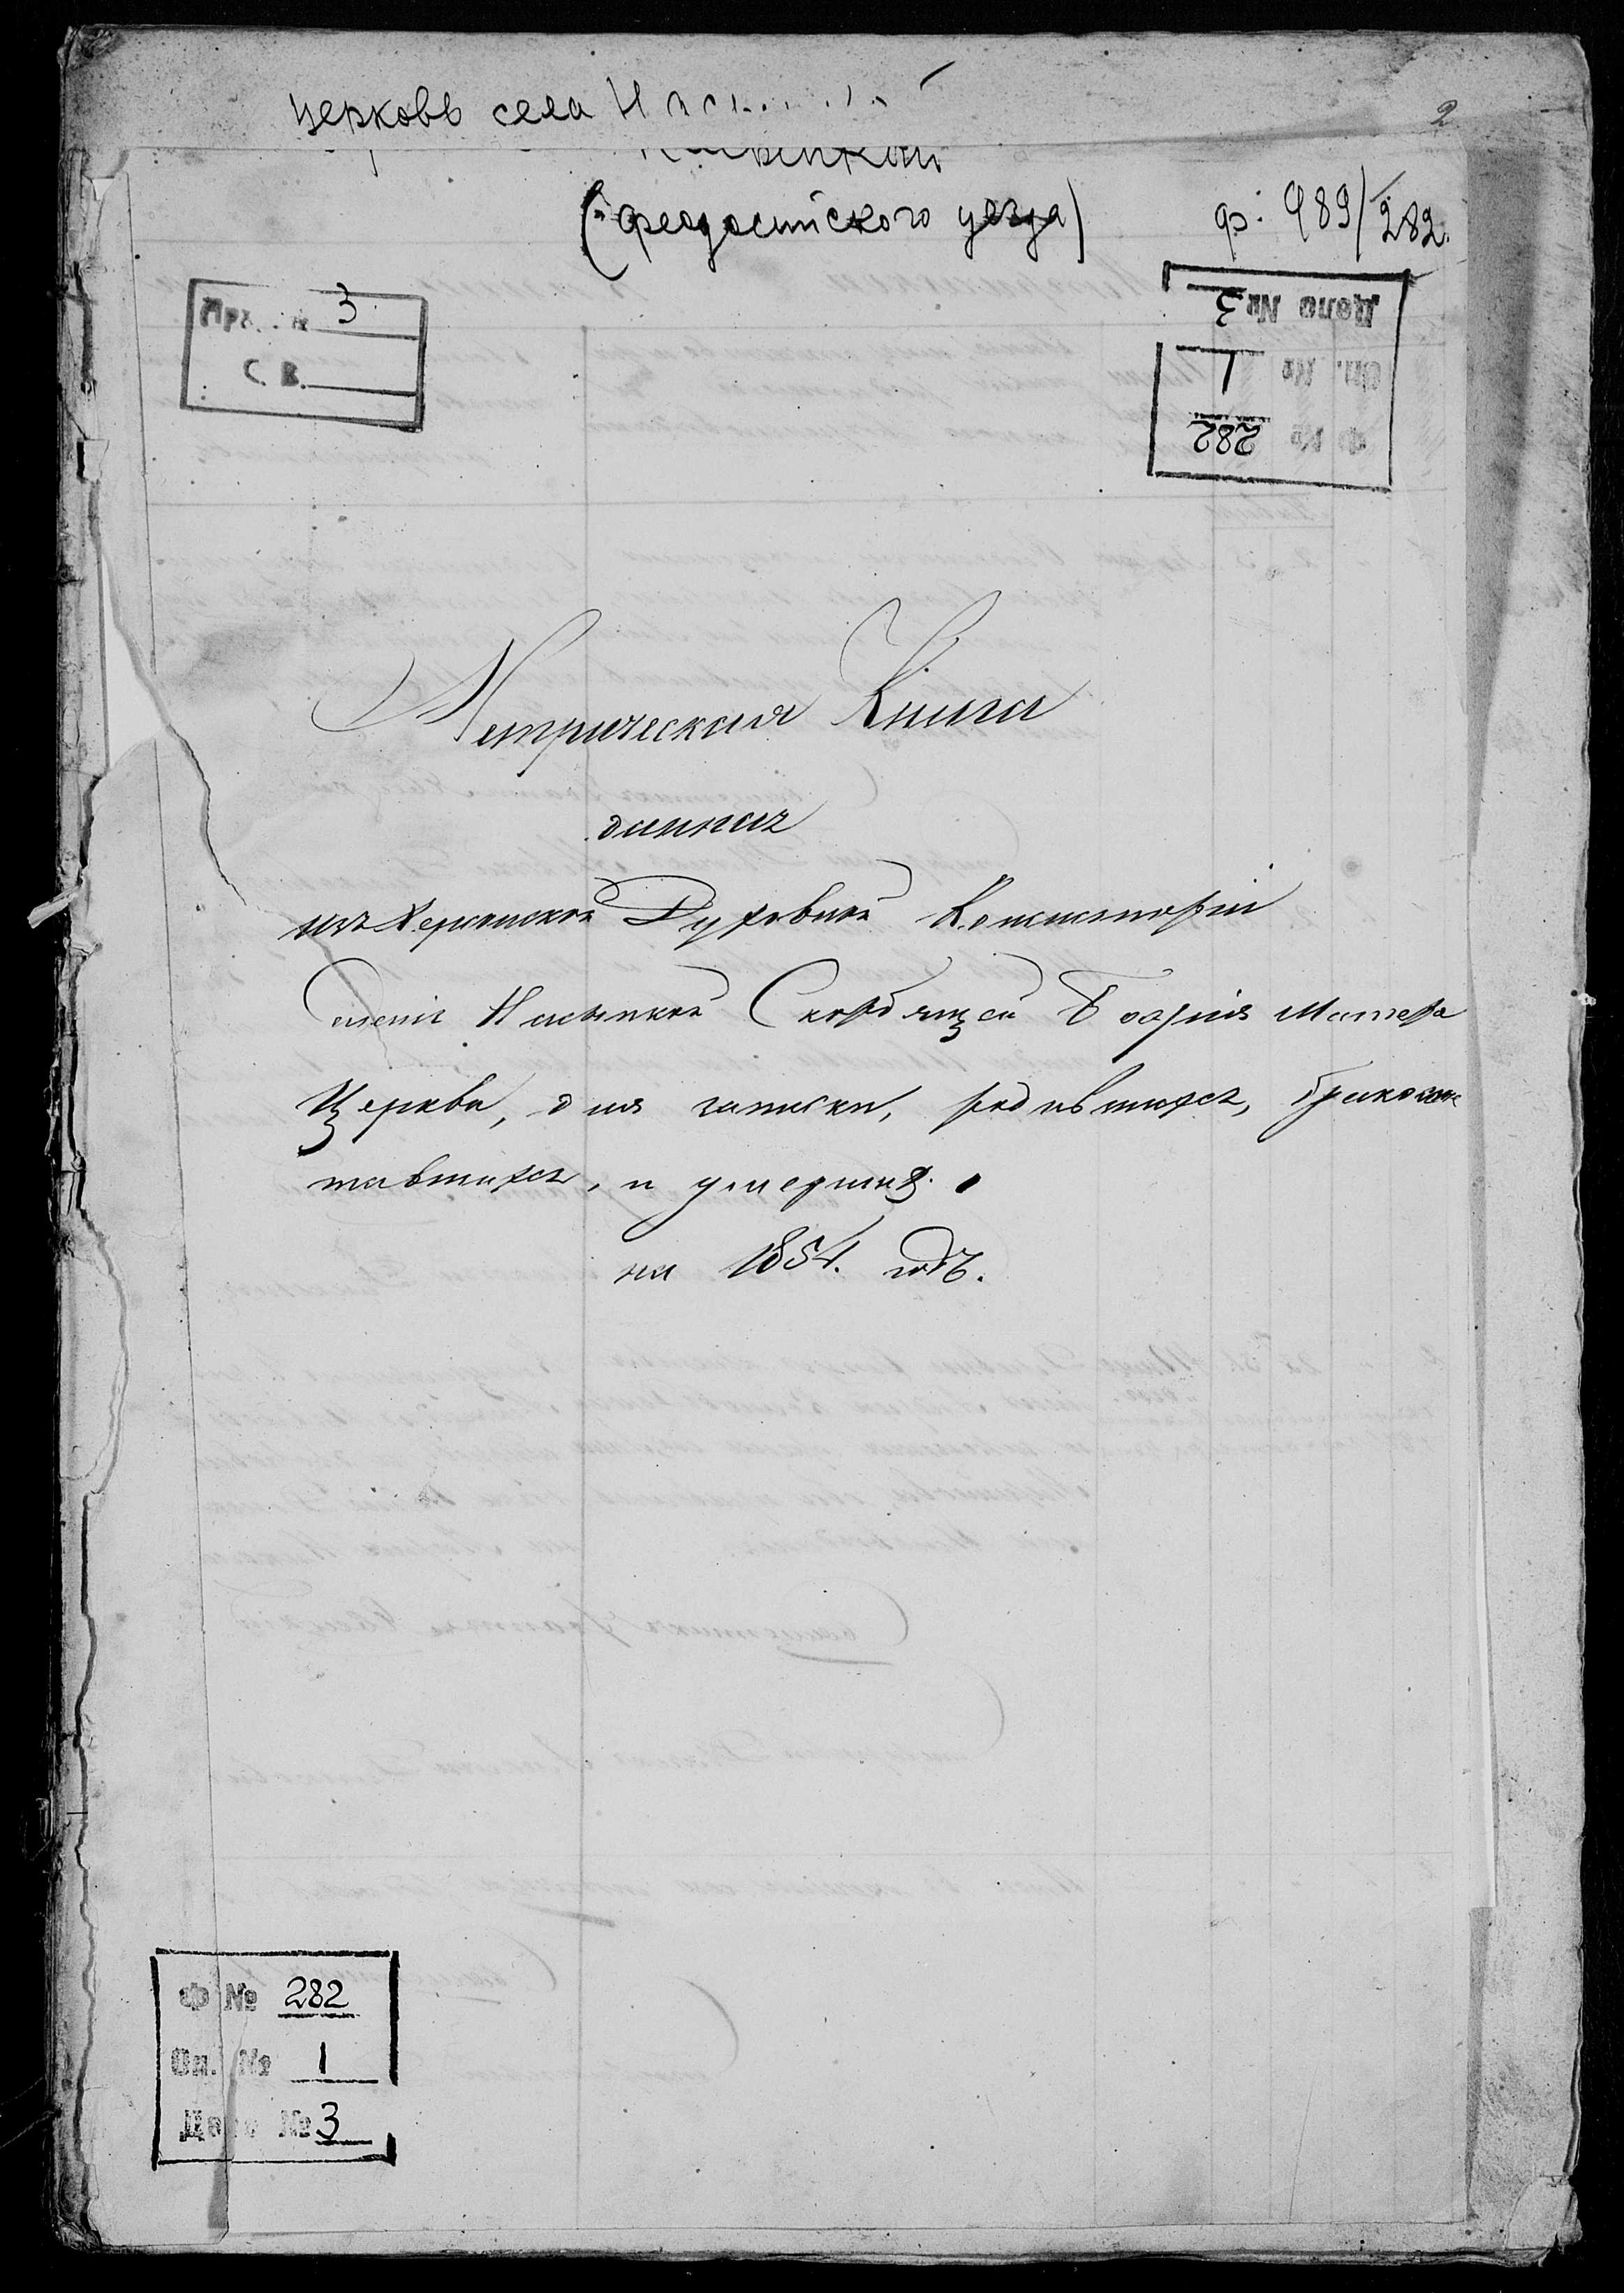 церковь села
2
(феодосийского уезда)
ф. 989/282.
3
С. В.
Дело № 3
Оп. № 1
Ф № 282
Метрическая Книга
данная
изъ Херсонской Духовной Консисторіи
Селенія Насыпкой Скорбящей Божія Матера
Церкви, для записки, родившихся, бракосоче
тавшихся, и умершихъ.
на 1854. годъ.
Ф № 282
Оп. № 1
Дело № 3